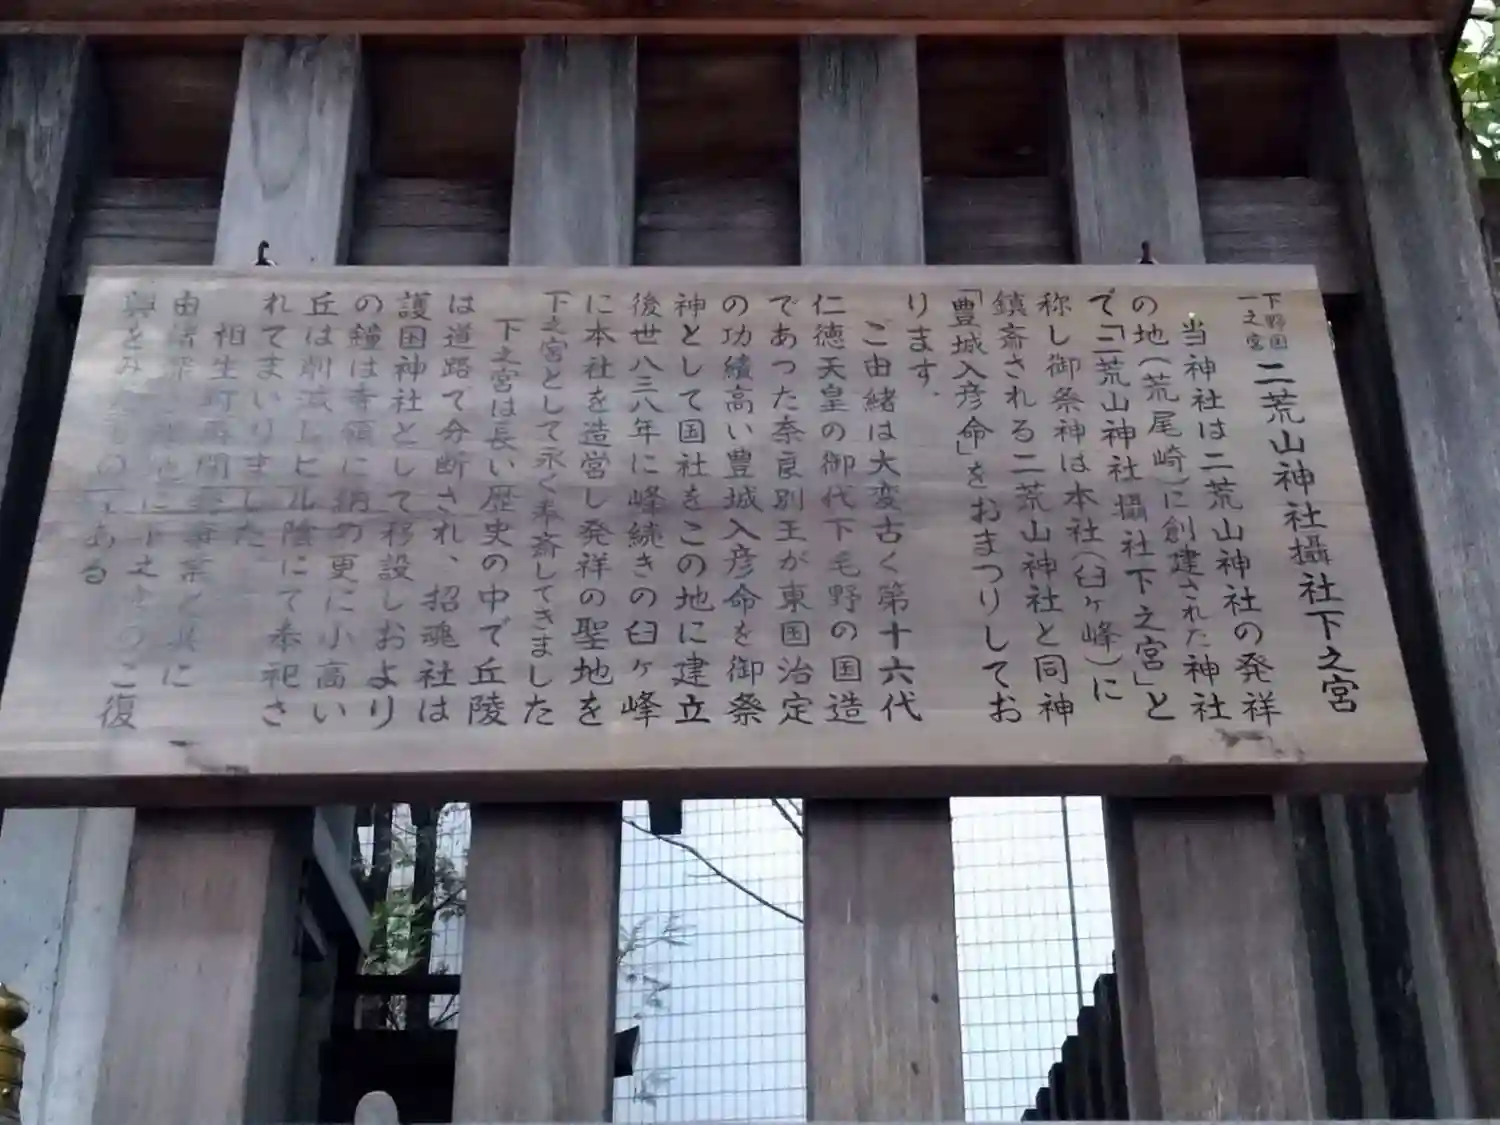 下野国
一之宮
二荒山神社攝社下之宮
当神社は二荒山神社の発祥
の地(荒尾崎)に創建された神社
で「二荒山神社攝社下之宮」と
称し御祭神は本社(臼ヶ峰)に
鎮斎される二荒山神社と同神
「豊城入彦命」をおまつりしてお
ります.
ご由緒は大変古く第十六代
仁徳天皇の御代下毛野の国造
であつた奈良別王が東国治定
の功績高い豊城入彦命を御祭
神として国社をこの地に建立
後世八三八年に峰続きの臼ヶ峰
に本社を造営し発祥の聖地を
下之宮として永く奉斎してきました
下之宮は長い歴史の中で丘陵
は道路で分断され、招魂社は
護国神社として移設しおより
の鐘は寺領に納め更に小高い
丘は削減しビル陰にて奉祀さ
れてまいりました
相生町再開発事業と共に
由緒
興をみ
のご復
のである